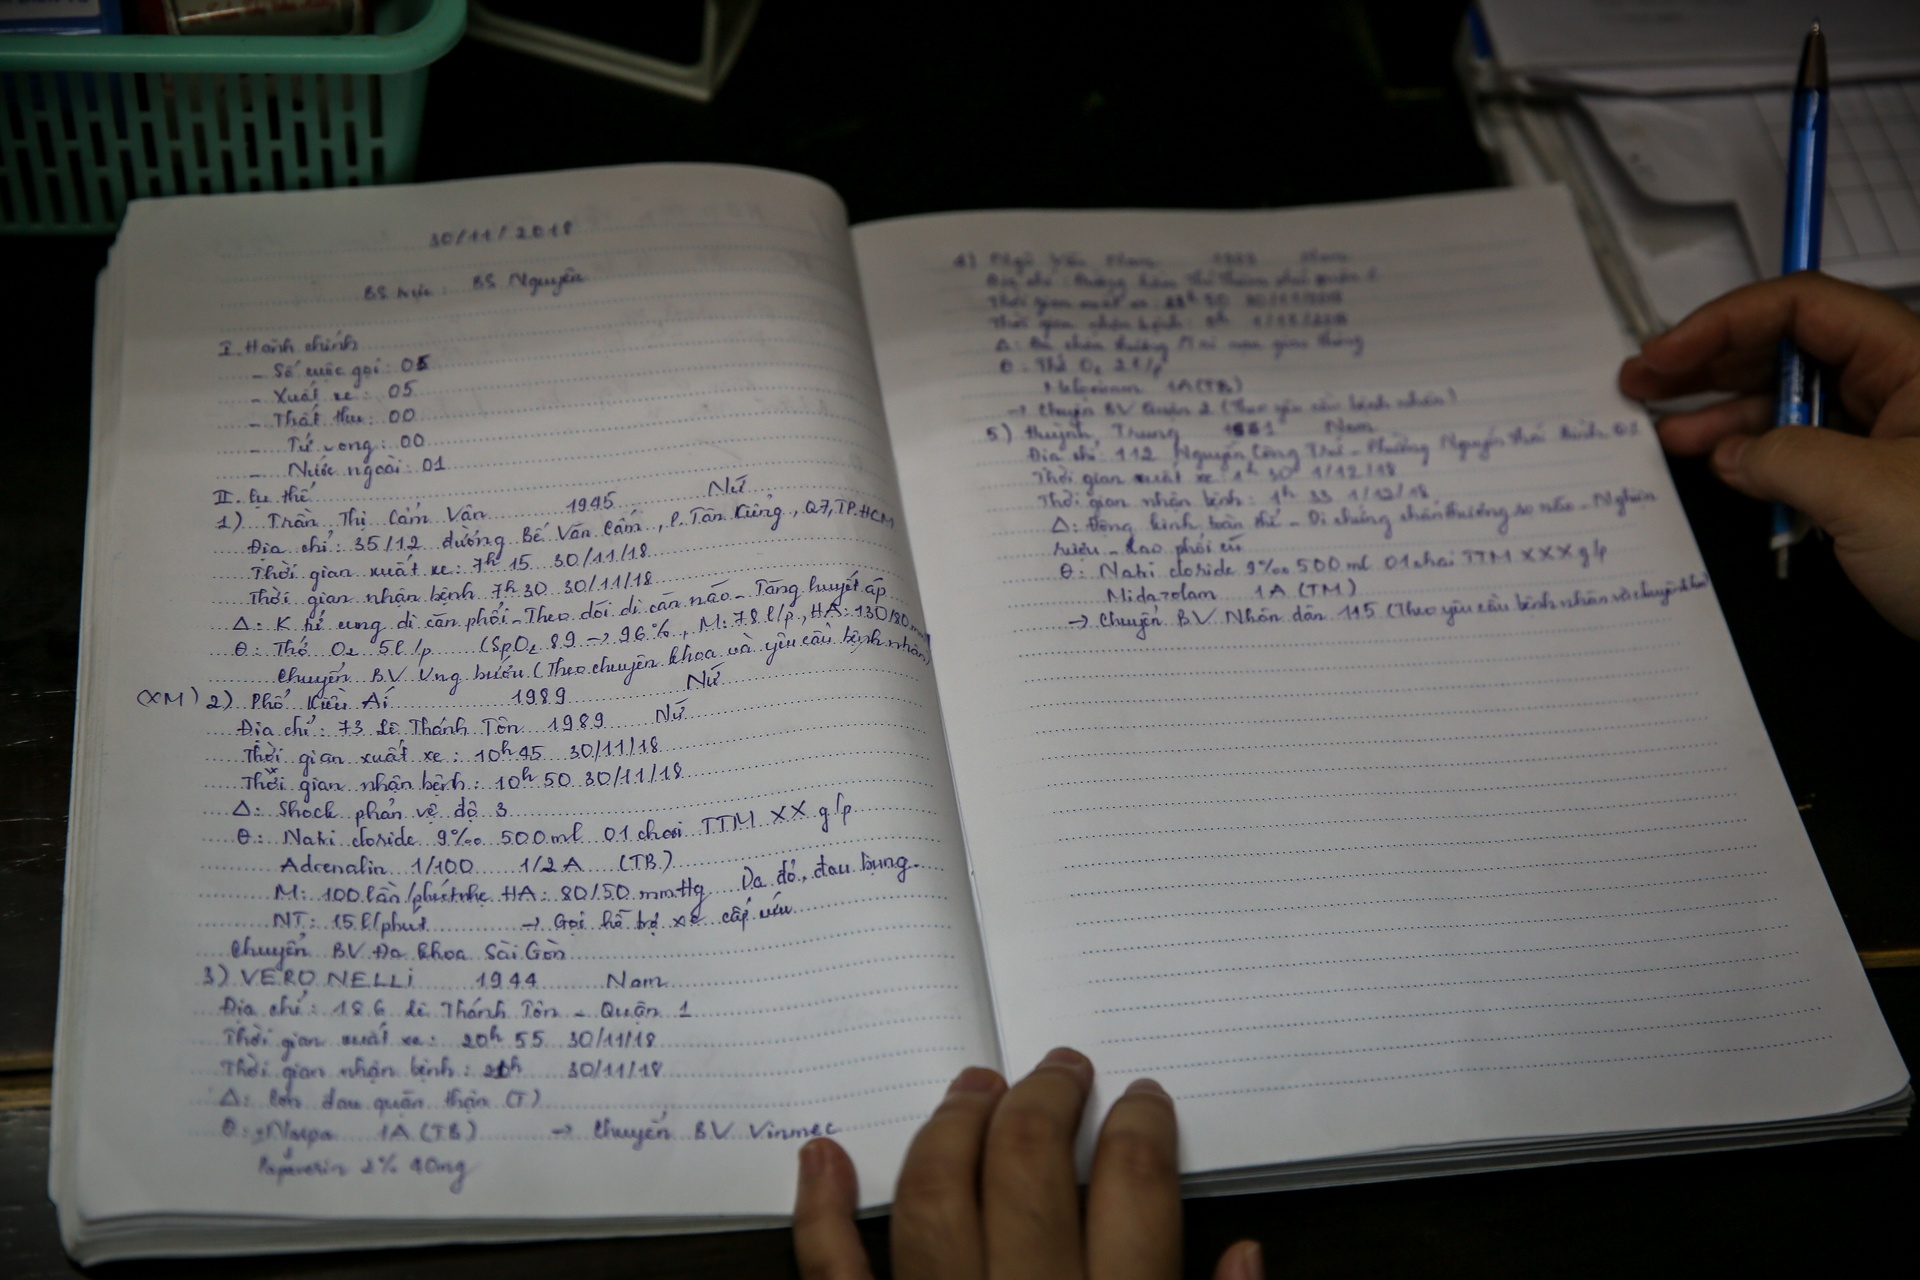 30/11/2018
BS trực : BS Nguyên
I. Hành chính
- Số cuộc gọi : 05
- Xuất xe : 05
- Thất thu : 00
- Tử vong : 00
- Nước ngoài : 01
II. Cụ thể
1) Trần Thị Cẩm Vân 1945 Nữ
Địa chỉ : 35/12 đường Bế Văn Cấm, P. Tân Kiểng, Q7, TP.HCM
Thời gian xuất xe : 7h 15 30/11/18
Thời gian nhận bệnh 7h 30 30/11/18
Δ : K hí cung di căn phổi - Theo dõi di căn não - Tăng huyết áp
θ : Thở O2 5l/p (SpO2 89 → 96%, M : 78 l/p, HA : 130/80
Chuyển BV Ung bướu (Theo chuyên khoa và yêu cầu bệnh nhân)
(XM) 2) Phổ Kiều Ái 1989 Nữ
Địa chỉ : 73 Lê Thánh Tôn 1989 Nữ
Thời gian xuất xe : 10h 45 30/11/18
Thời gian nhận bệnh : 10h 50 30/11/18
Δ : Shock phản vệ độ 3
θ : Natri cloride 9‰ 500ml 01 chai TTM XX g/p
Adrenalin 1/100 1/2A (TB)
M : 100 lần/phút nhẹ HA : 80/50 mmHg Da đỏ, đau bụng.
NT : 15 l/phút → Gọi hỗ trợ xe cấp cứu
Chuyển BV Đa khoa Sài Gòn
3) VERONELLI 1944 Nam
Địa chỉ : 186 Lê Thánh Tôn - Quận 1
Thời gian xuất xe : 20h 55 30/11/18
Thời gian nhận bệnh : 21h 30/11/18
Δ : Cơn đau quặn thận (T)
θ : Nospa 1A (TB) → Chuyển BV Vinmec
Papaverin 2% 40mg
4) Ngô Văn
Địa chỉ : Đường
Thời gian xuất xe : 30/11/2018
Thời gian nhận bệnh : 1/12/2018
Δ : Đa chấn thương tai nạn giao thông
θ : Thở O2
1A (TB)
→ Chuyển BV Quận 2 (Theo yêu cầu bệnh nhân)
5) Huỳnh Trung Nam
Địa chỉ : 112 Nguyễn Công Trứ - Phường Nguyễn Thái Bình Q1
Thời gian xuất xe : 1h 30 1/12/18
Thời gian nhận bệnh : 1h 33 1/12/18
Δ : Động kinh toàn thể - Di chứng chấn thương sọ não - Nghiện
rượu - Lao phổi cũ
θ : Natri cloride 9‰ 500ml 01 chai TTM XXX g/p
Midazolam 1A (TM)
→ Chuyển BV Nhân dân 115 (Theo yêu cầu bệnh nhân và chuyên khoa)